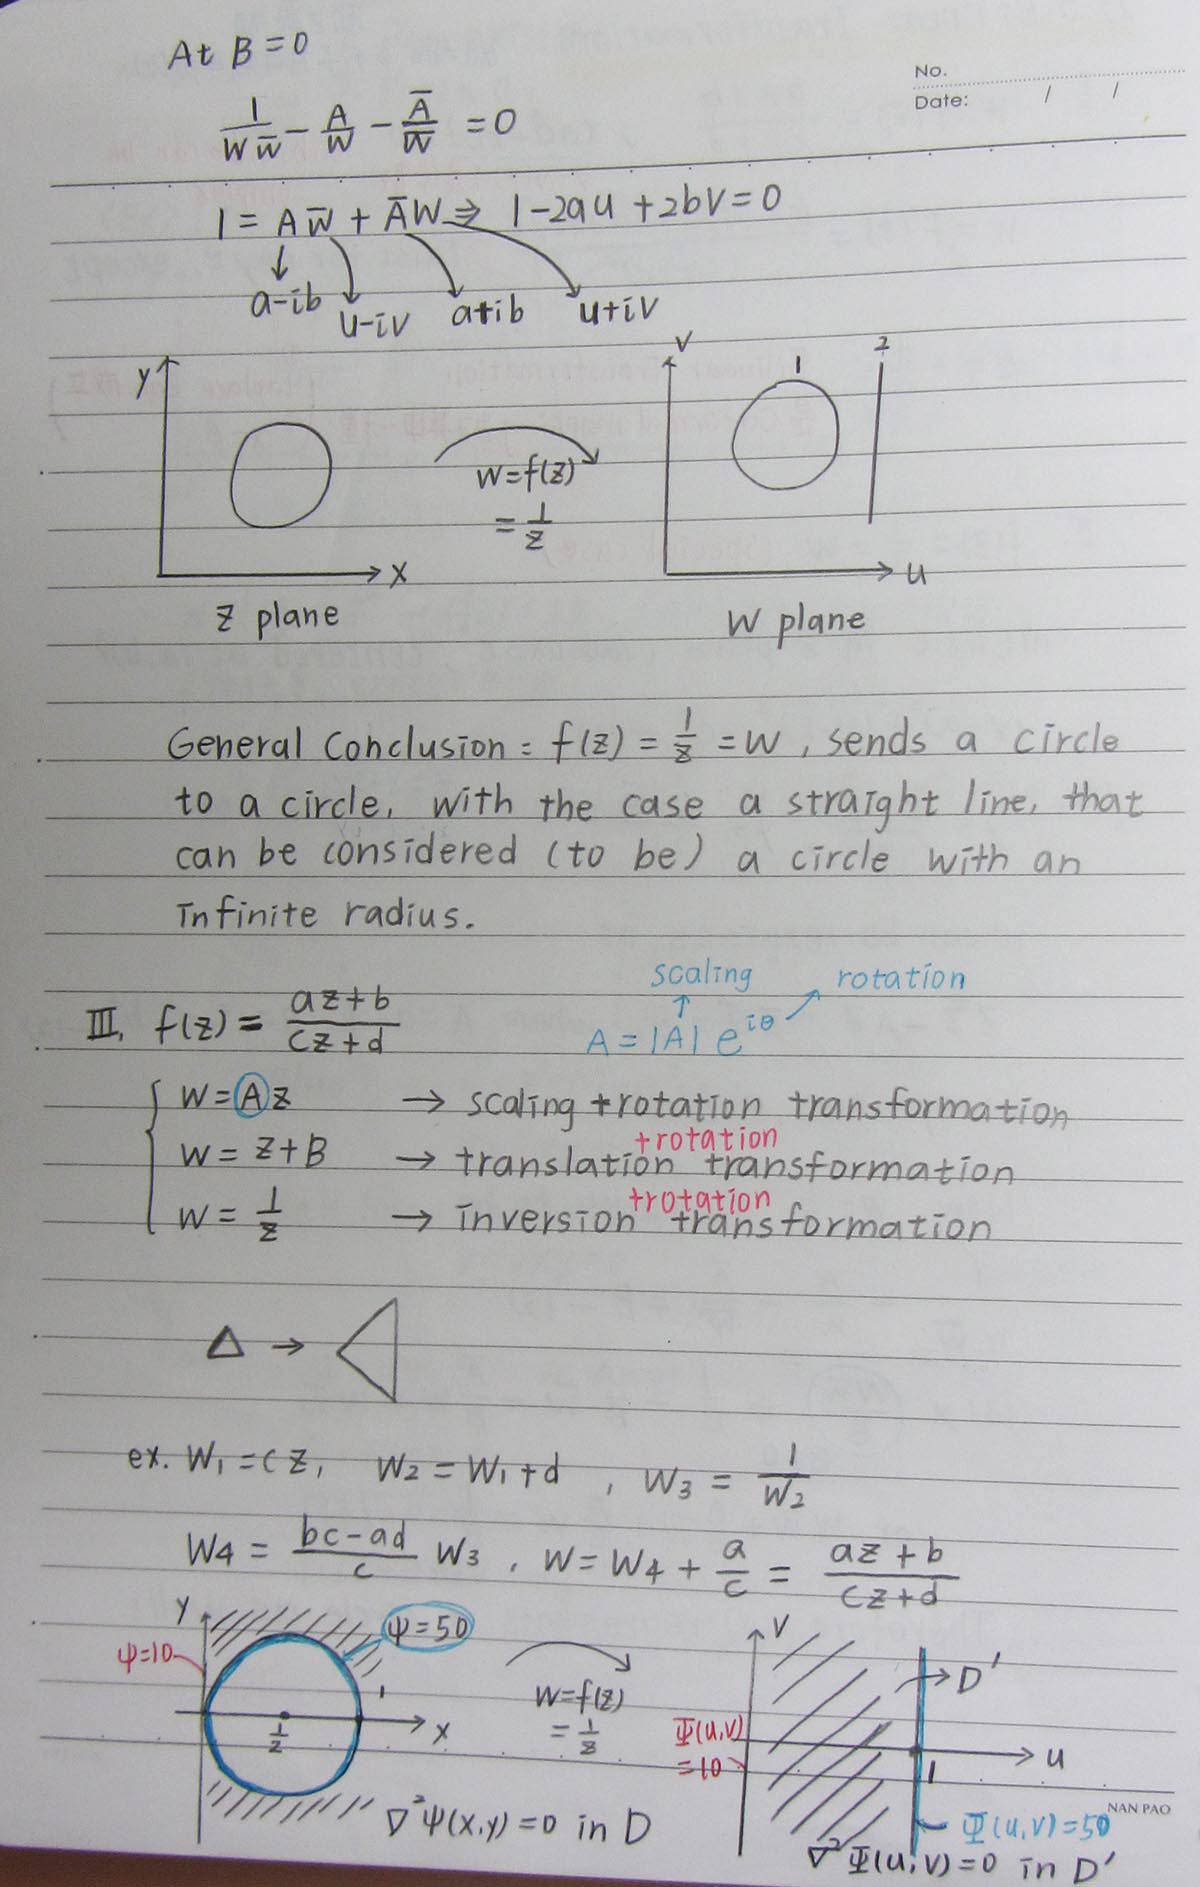 At B=0
No.
Date: / /
1/(W W̄) − A/W − Ā/W̄ = 0
1 = A W̄ + Ā W ⇒ 1−2au + 2bV = 0
a−ib u−iv a+ib u+iv
y V 1 2
W=f(z)
= 1/z
x u
z plane W plane
General Conclusion : f(z) = 1/z = W , sends a circle
to a circle, with the case a straight line, that
can be considered (to be) a circle with an
infinite radius.
scaling rotation
III. f(z) = (az+b)/(cz+d) A = |A| e^{iθ}
W = Az → scaling +rotation transformation
+rotation
W = z+B → translation transformation
+rotation
W = 1/z → inversion transformation
Δ →
ex. W₁ = cz, W₂ = W₁+d , W₃ = 1/W₂
W₄ = (bc−ad)/c W₃ , W = W₄ + a/c = (az+b)/(cz+d)
y ψ=50 V
ψ=10 D'
1 W=f(z)
1/2 x = 1/z Ψ(u,v) u
=10 1
NAN PAO
∇²ψ(x,y)=0 in D Ψ(u,v)=50
∇²Ψ(u,v)=0 in D'